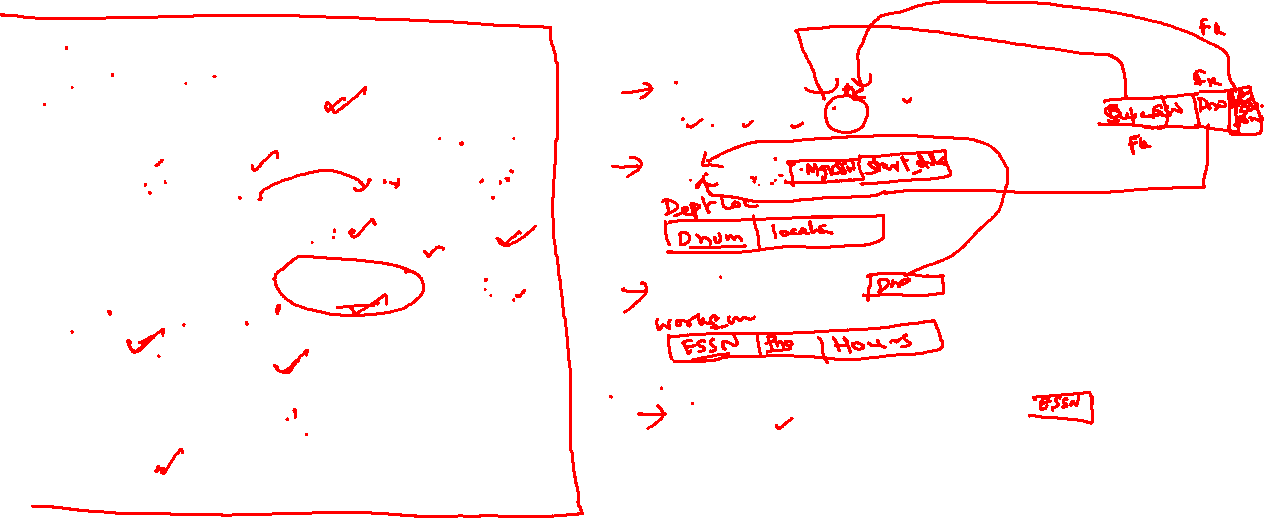 Fk
Fk
SuperSSN Dno
Fk
MgrSSN start_date
Dept Loc
Dnum locatn
Dno
Works_on
ESSN Pno Hours
ESSN